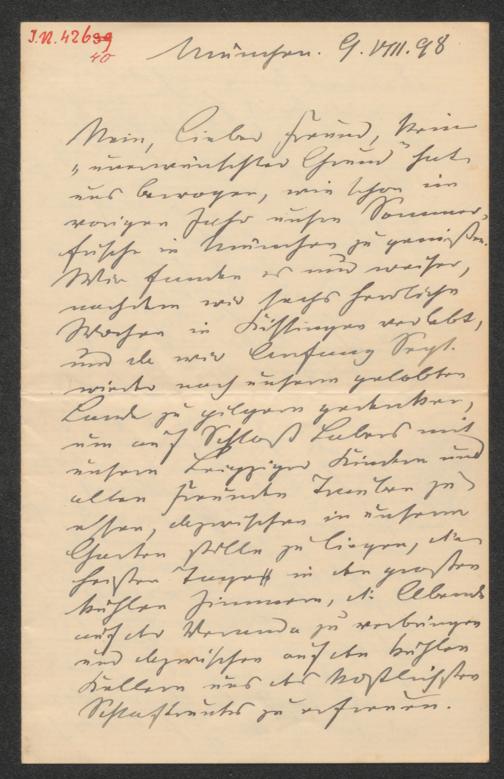 I.N. 42639
40
München. 9. VIII. 98
Nein, lieber Freund, kein
"unerwünschter Grund" hat
uns bewogen, wie schon im
vorigen Jahr unsre Sommer-
frische in München zu genießen.
Wir fanden es nur weiser,
nachdem wir sechs herrliche
Wochen in Kissingen verlebt,
und da wir Anfang Sept.
wieder nach unserm gelobten
Lande zu pilgern gedenken,
um auf Schloß Labers mit
unsern Leipziger Kindern und
alten Freunden Trauben zu
essen, dazwischen in unserm
Garten stille zu liegen, die
heißen Tage in den großen
kühlen Zimmern, die Abende
auf der Veranda zu verbringen
und dazwischen aus den kühlen
Kellern uns des köstlichsten
zu erfreuen.